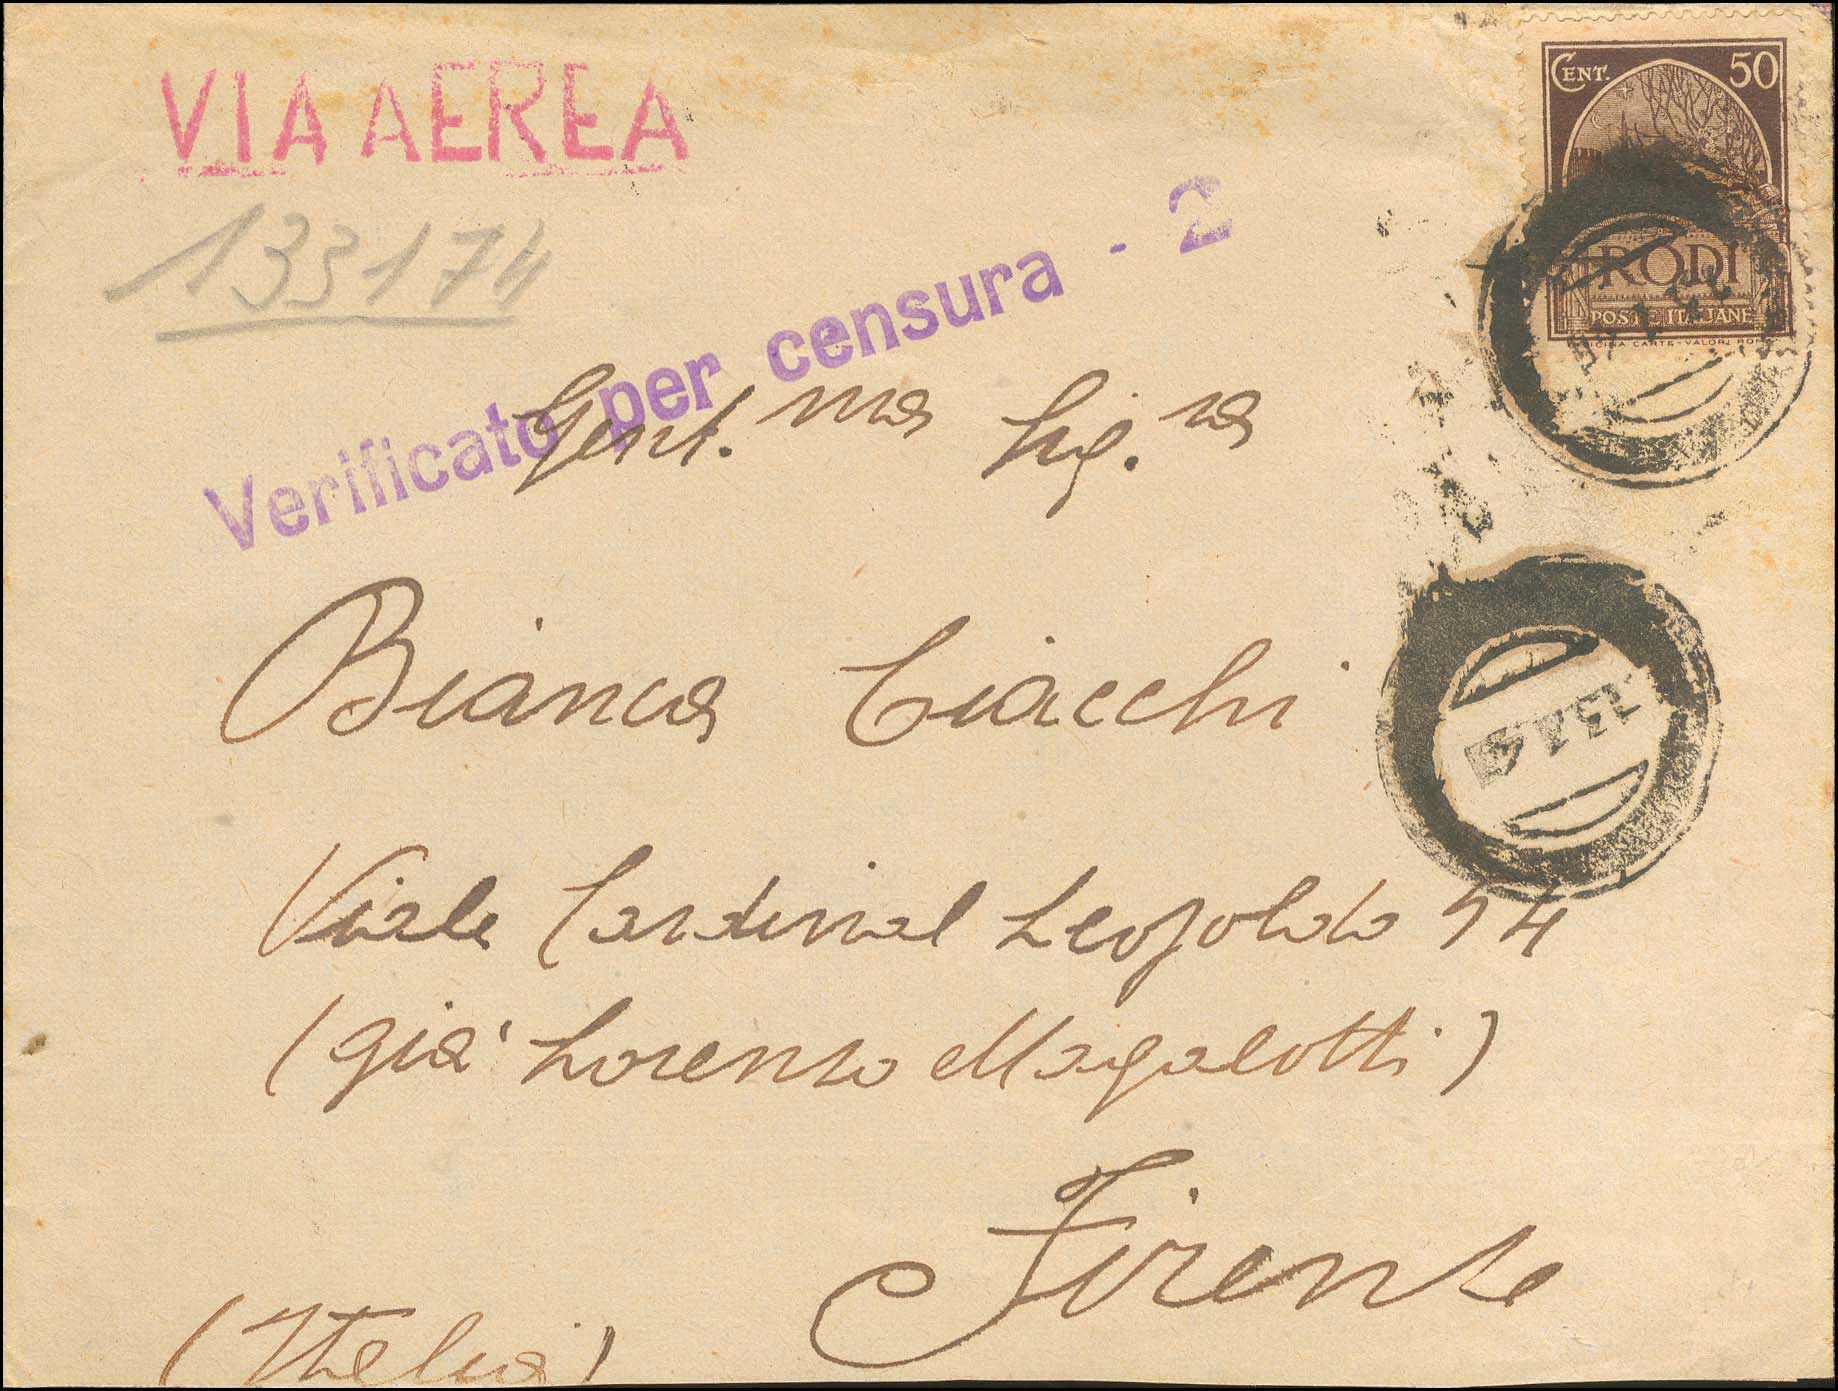 VIA AEREA
CENT. 50
133174
Verificato per censura - 2
RODI
POSTE ITALIANE
OFFICINA CARTE-VALORI ROMA
Gent.ma Sig.ra
Bianca Ciacchi
Viale Cardinal Leopoldo 54
(già Lorenzo Magalotti)
Firenze
(Italia)